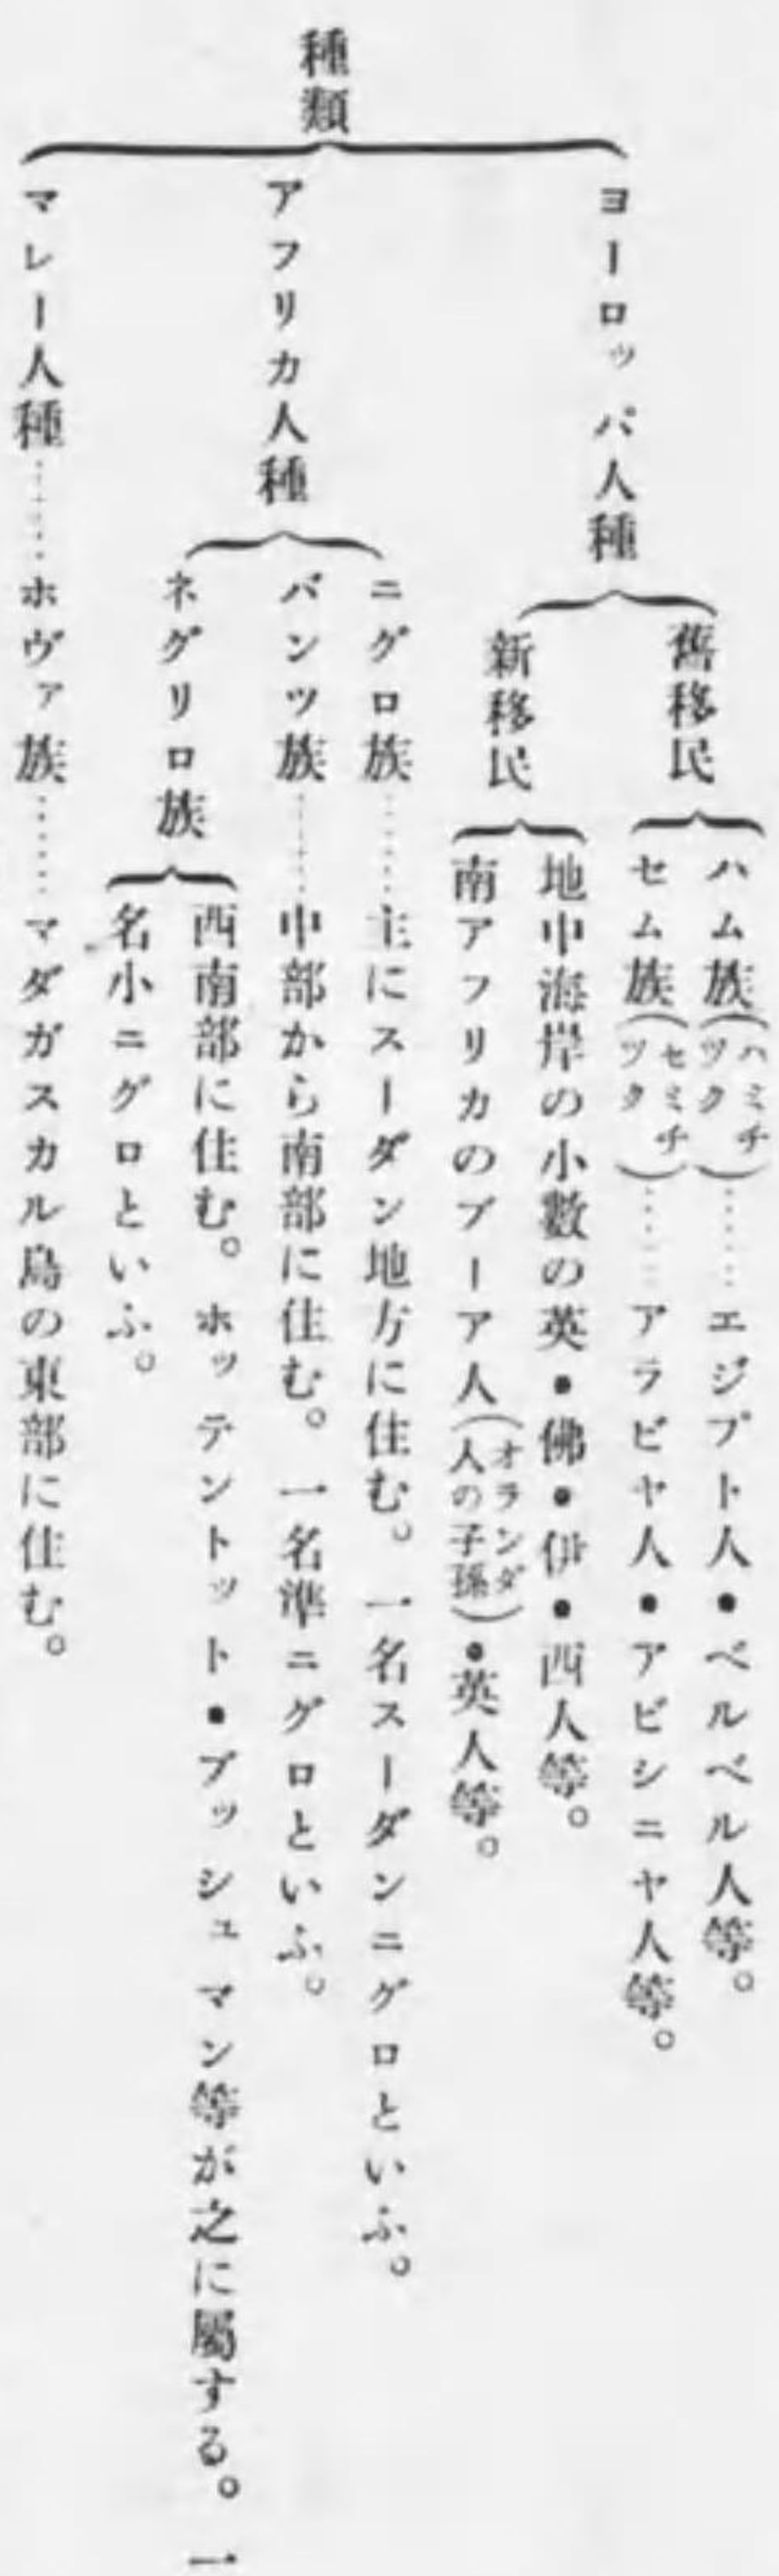 種類
ヨーロッパ人種
舊移民
ハム族(ハミチック)……エジプト人・ベルベル人等。
セム族(セミチック)……アラビヤ人・アビシニヤ人等。
新移民
地中海岸の小數の英・佛・伊・西人等。
南アフリカのブーア人(オランダ人の子孫)・英人等。
アフリカ人種
ニグロ族……主にスーダン地方に住む。一名スーダンニグロといふ。
バンツ族……中部から南部に住む。一名準ニグロといふ。
ネグリロ族
西南部に住む。ホッテントット・ブッシュマン等が之に屬する。一
名小ニグロといふ。
マレー人種……ホヴァ族……マダガスカル島の東部に住む。